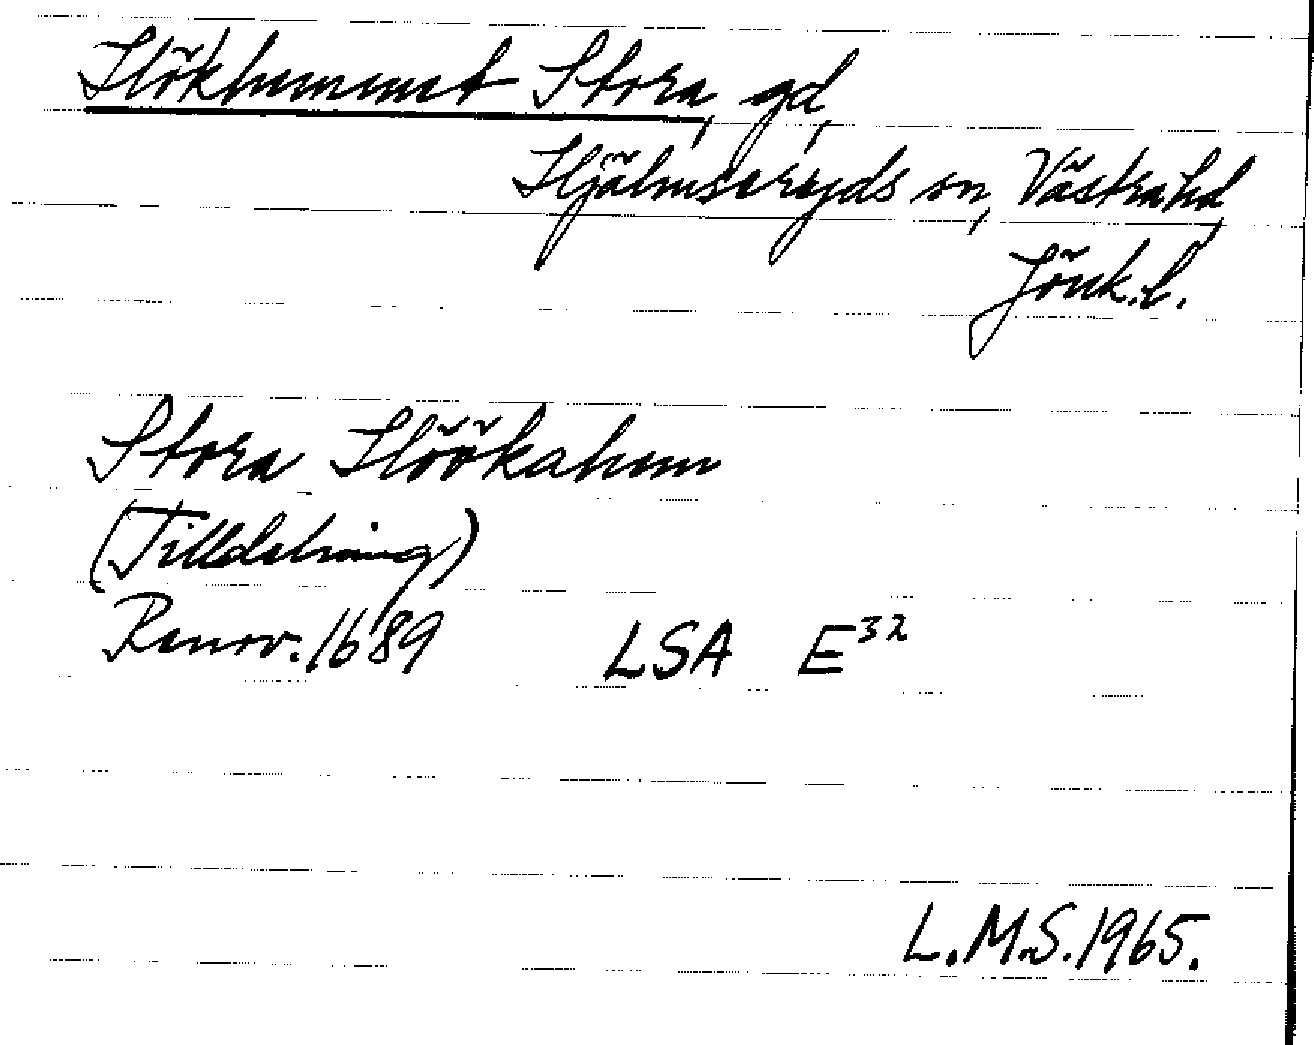 Hökhummet Stora, gd,
Hjälmseryds sn, Västra hd,
Jönk. l.
Stora Höökahum
(Tilldelning)
Renov. 1689 LSA E³²
L.M.S. 1965.